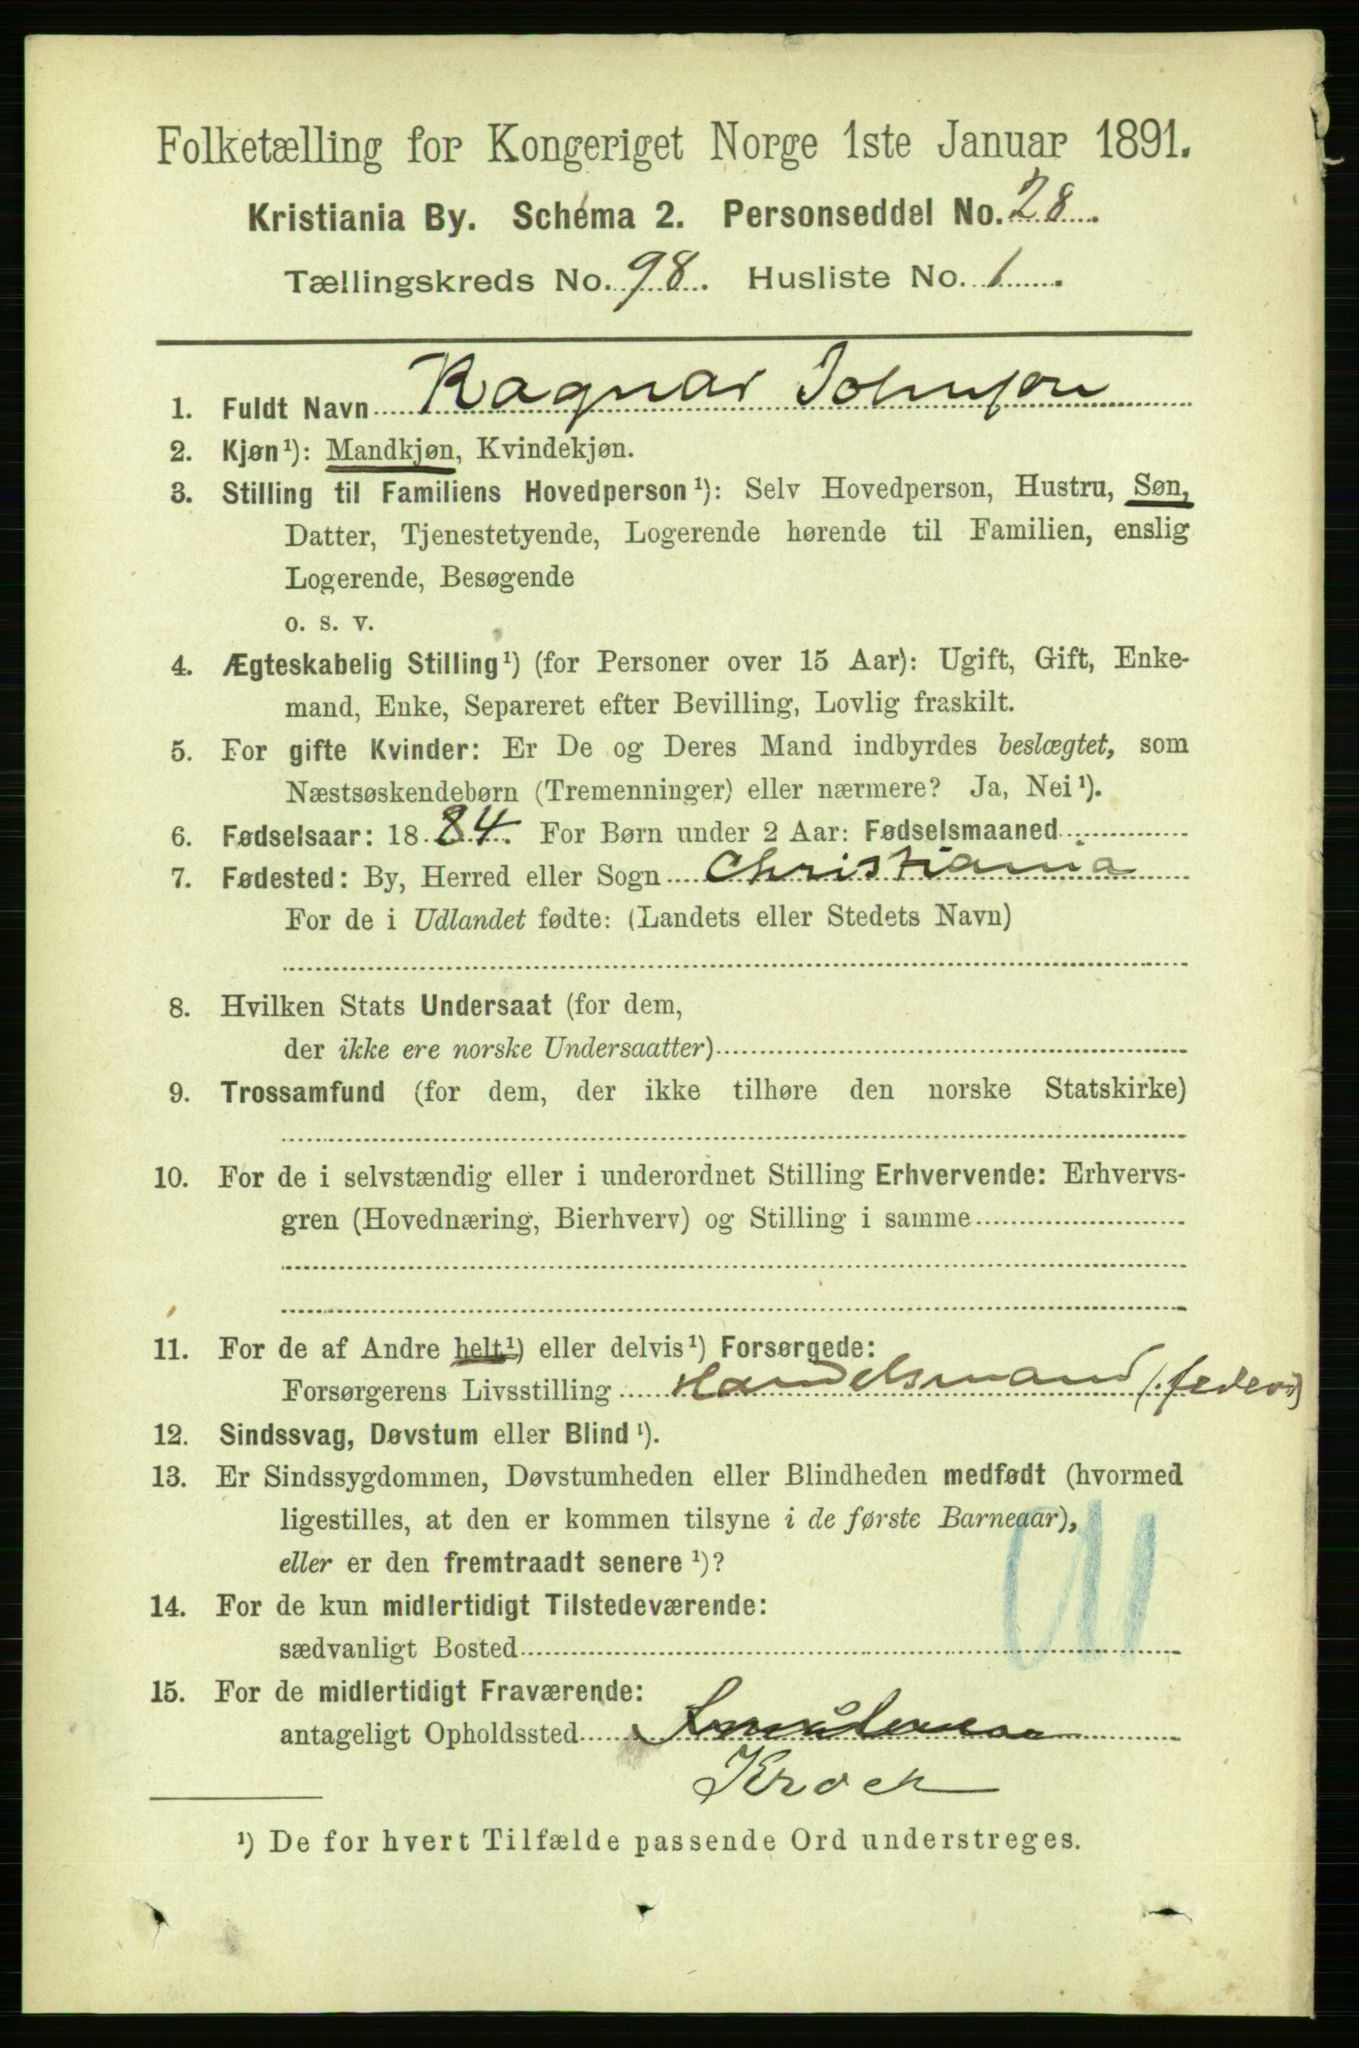 Folketælling for Kongeriget Norge 1ste Januar 1891.
Kristiania By. Schema 2. Personseddel No. 28.
Tællingskreds No. 98. Husliste No. 1
1. Fuldt Navn Ragnar Johnson
2. Kjøn¹): Mandkjøn, Kvindekjøn.
3. Stilling til Familiens Hovedperson¹): Selv Hovedperson, Hustru, Søn,
Datter, Tjenestetyende, Logerende hørende til Familien, enslig
Logerende, Besøgende
o. s. v.
4. Ægteskabelig Stilling¹) (for Personer over 15 Aar): Ugift, Gift, Enke-
mand, Enke, Separeret efter Bevilling, Lovlig fraskilt.
5. For gifte Kvinder: Er De og Deres Mand indbyrdes beslægtet, som
Næstsøskendebørn (Tremenninger) eller nærmere? Ja, Nei¹).
6. Fødselsaar: 1884. For Børn under 2 Aar: Fødselsmaaned
7. Fødested: By, Herred eller Sogn Christiania
For de i Udlandet fødte: (Landets eller Stedets Navn)
8. Hvilken Stats Undersaat (for dem,
der ikke ere norske Undersaatter)
9. Trossamfund (for dem, der ikke tilhøre den norske Statskirke)
10. For de i selvstændig eller i underordnet Stilling Erhvervende: Erhvervs-
gren (Hovednæring, Bierhverv) og Stilling i samme
11. For de af Andre helt¹) eller delvis¹) Forsørgede:
Forsørgerens Livsstilling Handelsmand (: feder :)
12. Sindssvag, Døvstum eller Blind¹).
13. Er Sindssygdommen, Døvstumheden eller Blindheden medfødt (hvormed
ligestilles, at den er kommen tilsyne i de første Barneaar),
eller er den fremtraadt senere¹)?
14. For de kun midlertidigt Tilstedeværende:
sædvanligt Bosted
15. For de midlertidigt Fraværende:
antageligt Opholdssted
¹) De for hvert Tilfælde passende Ord understreges.